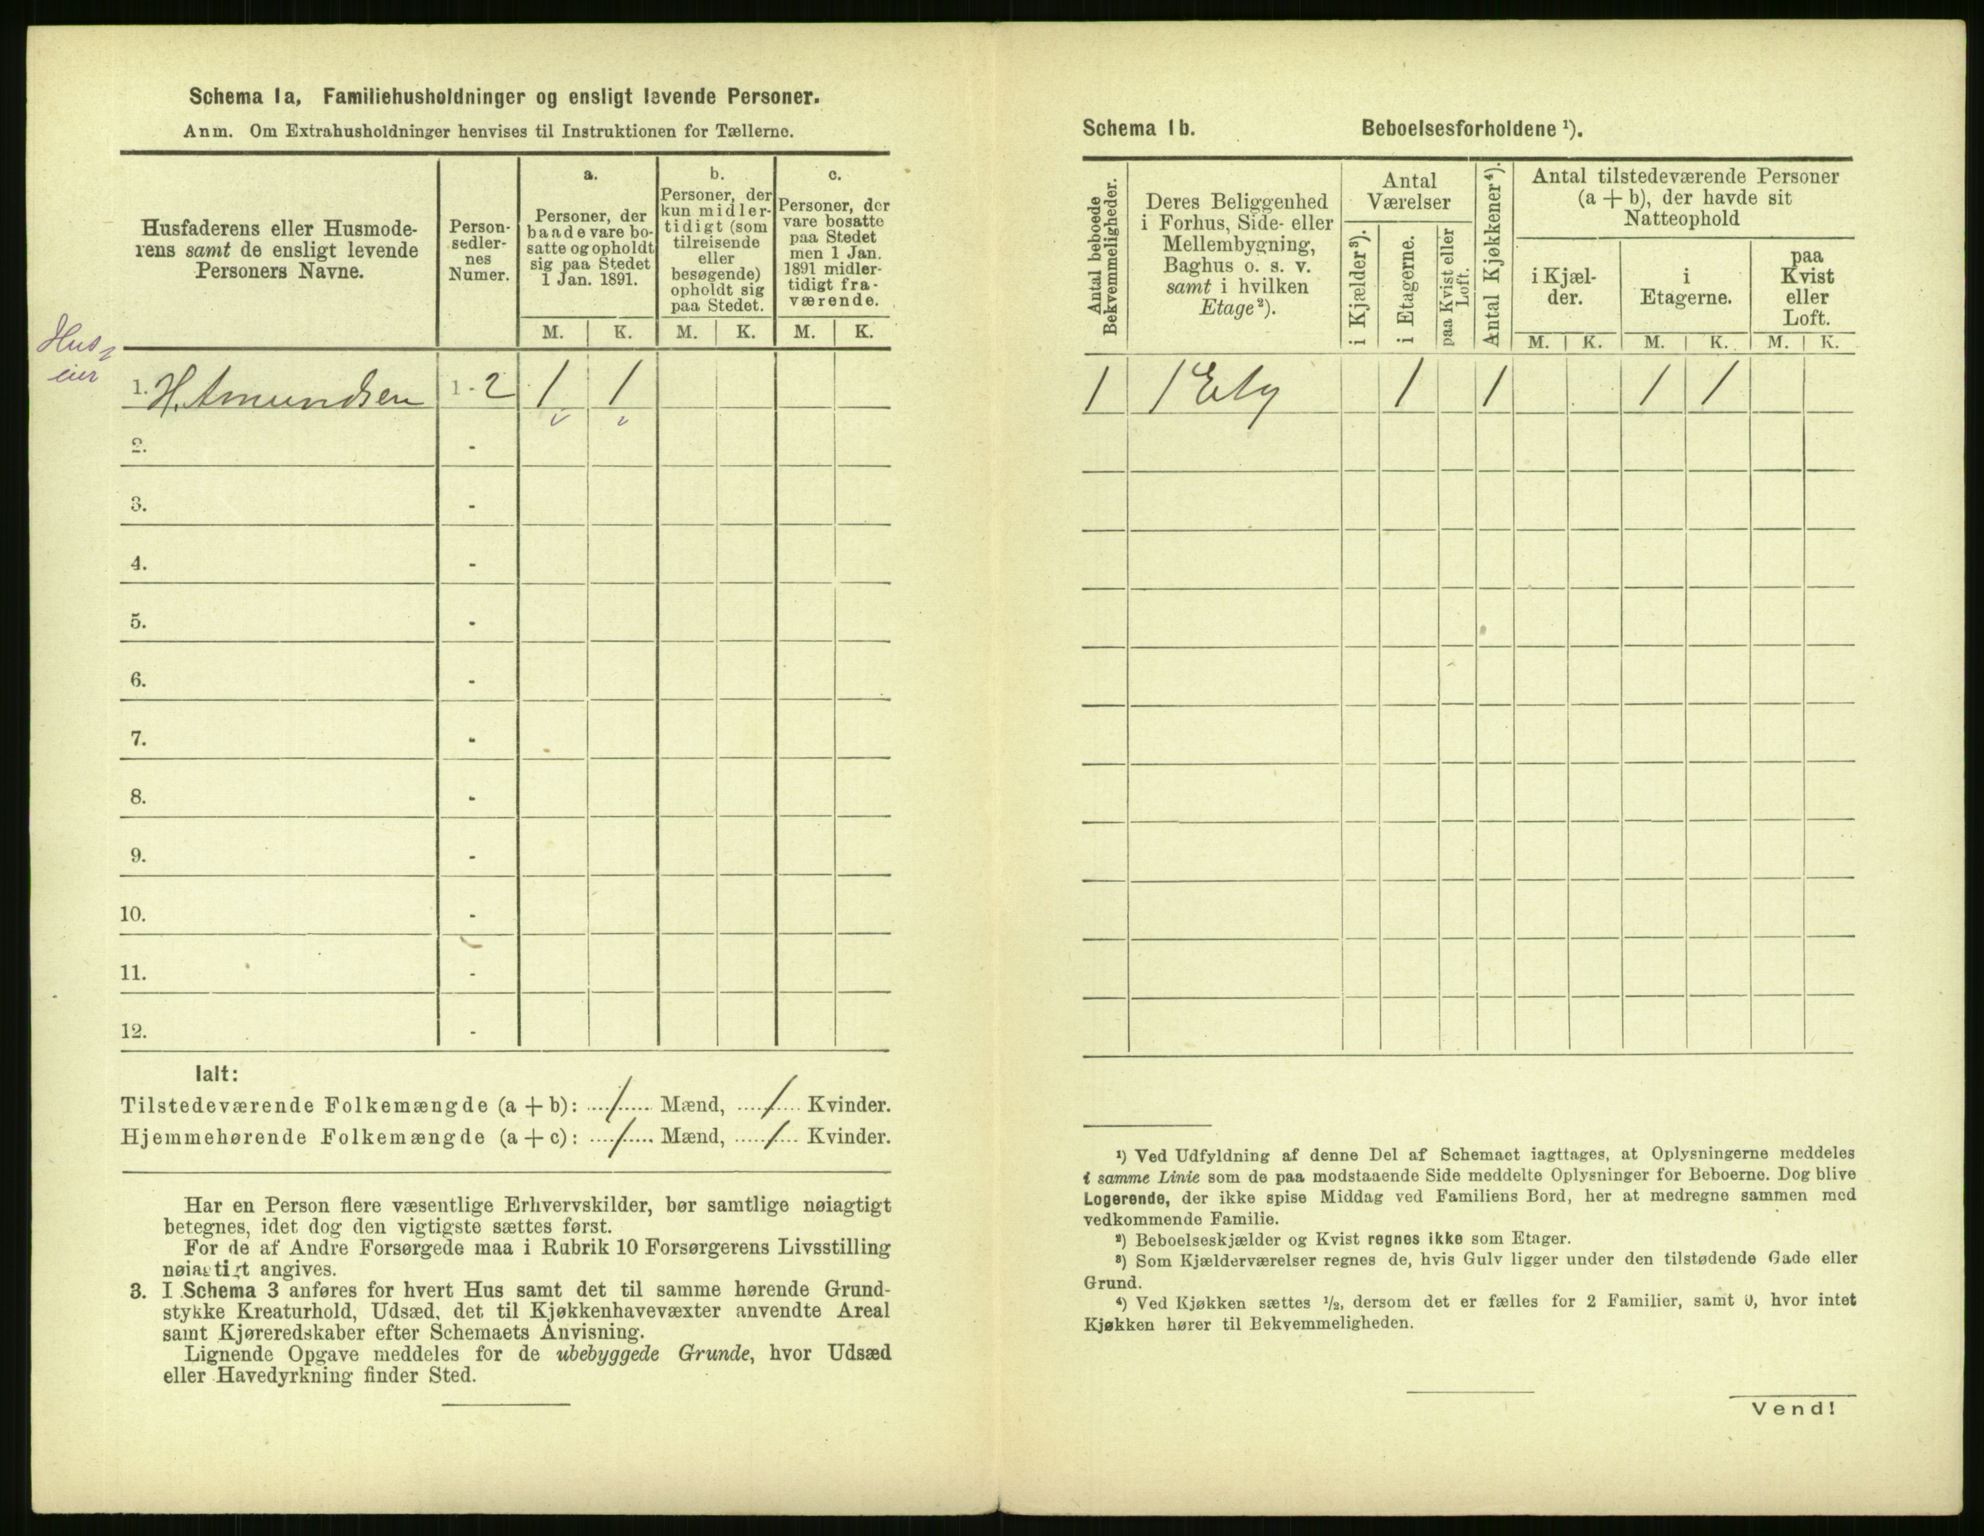 Schema 1a, Familiehusholdninger og ensligt levende Personer.
Anm. Om Extrahusholdninger henvises til Instruktionen for Tællerne.
Husfaderens eller Husmode-
rens samt de ensligt levende
Personers Navne.
Person-
sedler-
nes
Numer.
a.
Personer, der
baade vare bo-
satte og opholdt
sig paa Stedet
1 Jan. 1891.
b.
Personer, der
kun midler-
tidigt (som
tilreisende
eller
besøgende)
opholdt sig
paa Stedet.
c.
Personer, der
vare bosatte
paa Stedet
men 1 Jan.
1891 midler-
tidigt fra-
værende.
M. K. M. K. M. K.
Hus-
eier
1. H. Amundsen 1 - 2 1 1
2. -
3. -
4. -
5. -
6. -
7. -
8. -
9. -
10. -
11. -
12. -
Ialt:
Tilstedeværende Folkemængde (a + b): 1 Mænd, 1 Kvinder.
Hjemmehørende Folkemængde (a + c): 1 Mænd, 1 Kvinder.
Har en Person flere væsentlige Erhvervskilder, bør samtlige nøiagtigt
betegnes, idet dog den vigtigste sættes først.
For de af Andre Forsørgede maa i Rubrik 10 Forsørgerens Livsstilling
nøiagtigt angives.
3. I Schema 3 anføres for hvert Hus samt det til samme hørende Grund-
stykke Kreaturhold, Udsæd, det til Kjøkkenhavevæxter anvendte Areal
samt Kjøreredskaber efter Schemaets Anvisning.
Lignende Opgave meddeles for de ubebyggede Grunde, hvor Udsæd
eller Havedyrkning finder Sted.
Schema 1b. Beboelsesforholdene ¹).
Antal beboede
Bekvemmeligheder.
Deres Beliggenhed
i Forhus, Side- eller
Mellembygning,
Baghus o. s. v.
samt i hvilken
Etage²).
Antal
Værelser
i Kjælder³).
i Etagerne.
paa Kvist eller
Loft.
Antal Kjøkkener⁴).
Antal tilstedeværende Personer
(a + b), der havde sit
Natteophold
i Kjæl-
der.
i
Etagerne.
paa
Kvist
eller
Loft.
M. K. M. K. M. K.
1 1 Etg 1 1 1 1
¹) Ved Udfyldning af denne Del af Schemaet iagttages, at Oplysningerne meddeles
i samme Linie som de paa modstaaende Side meddelte Oplysninger for Beboerne. Dog blive
Logerende, der ikke spise Middag ved Familiens Bord, her at medregne sammen med
vedkommende Familie.
²) Beboelseskjælder og Kvist regnes ikke som Etager.
³) Som Kjælderværelser regnes de, hvis Gulv ligger under den tilstødende Gade eller
Grund.
⁴) Ved Kjøkken sættes ½, dersom det er fælles for 2 Familier, samt 0, hvor intet
Kjøkken hører til Bekvemmeligheden.
Vend!